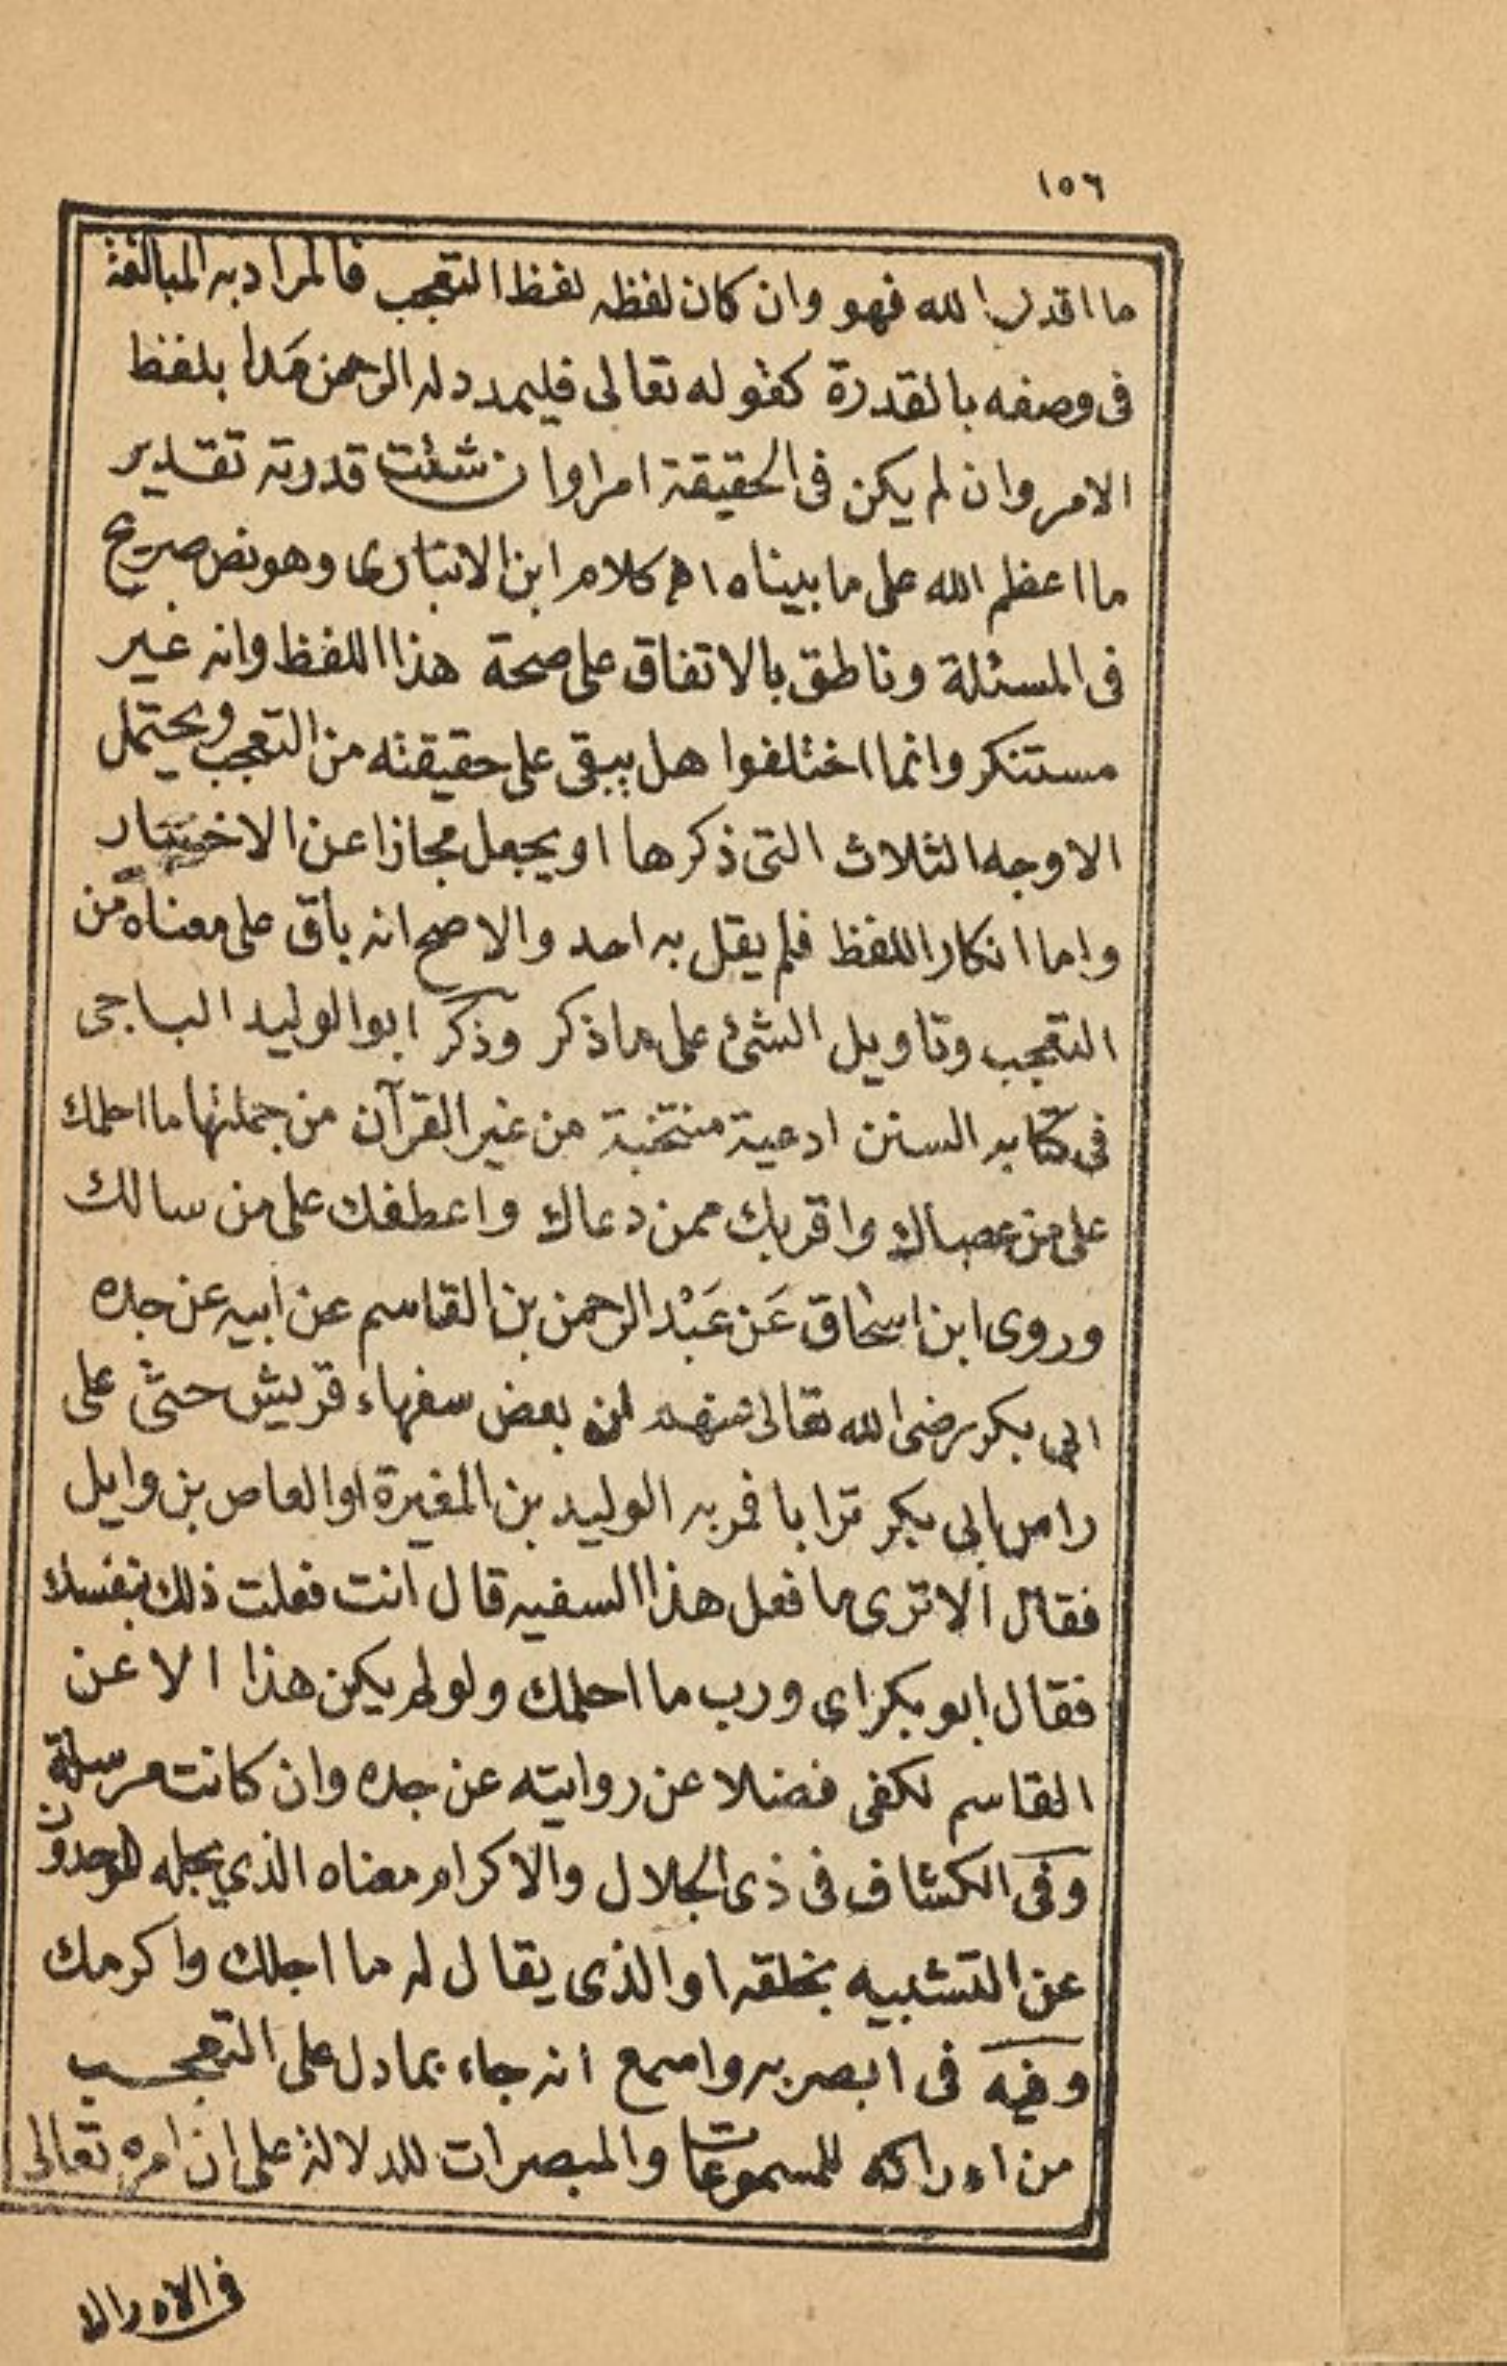 ١٥٦
ما اقدر الله فهو وان كان لفظه لفظ التعجب فالمراد به المبالغة
فى وصفه بالقدرة كقوله تعالى فليمدد له الرحمن مَدا بلفظ
الامر وان لم يكن فى الحقيقة امرا وان شئت قدرته تقدير
ما اعظم الله على ما بيناه اه كلام ابن الانبارى وهو نص صريح
فى المسئلة وناطق بالاتفاق على صحة هذا اللفظ وانه غير
مستنكر وانما اختلفوا هل يبقى على حقيقته من التعجب ويحتمل
الاوجه الثلاث التى ذكرها او يجعل مجازا عن الاخبار
واما انكار اللفظ فلم يقل به احد والاصح انه باق على معناه من
التعجب وتاويل الشئ على ما ذكر وذكر ابو الوليد الباجى
فى كتابه السنن ادعية منتخبة من غير القرآن من جملتها ما احلمك
على من عصاك واقربك ممن دعاك واعطفك على من سالك
وروى ابن اسحاق عَن عَبْد الرحمن بن القاسم عن ابيه عن جده
ابى بكر رضى الله تعالى عنهم ان بعض سفهاء قريش حثى على
راس ابى بكر ترابا فمر به الوليد بن المغيرة او العاص بن وايل
فقال الا ترى ما فعل هذا السفيه قال انت فعلت ذلك بنفسك
فقال ابو بكر اى ورب ما احلمك ولو لم يكن هذا الا عن
القاسم لكفى فضلا عن روايته عن جده وان كانت مرسلة
وفى الكشاف فى ذى الجلال والاكرام معناه الذي يجله الموحدون
عن التشبيه بخلقه او الذى يقال له ما اجلك واكرمك
وفيه فى ابصر به واسمع انه جاء بما دل على التعجب
من ادراكه للمسموعات والمبصرات للدلالة على ان امره تعالى
فى الادراك